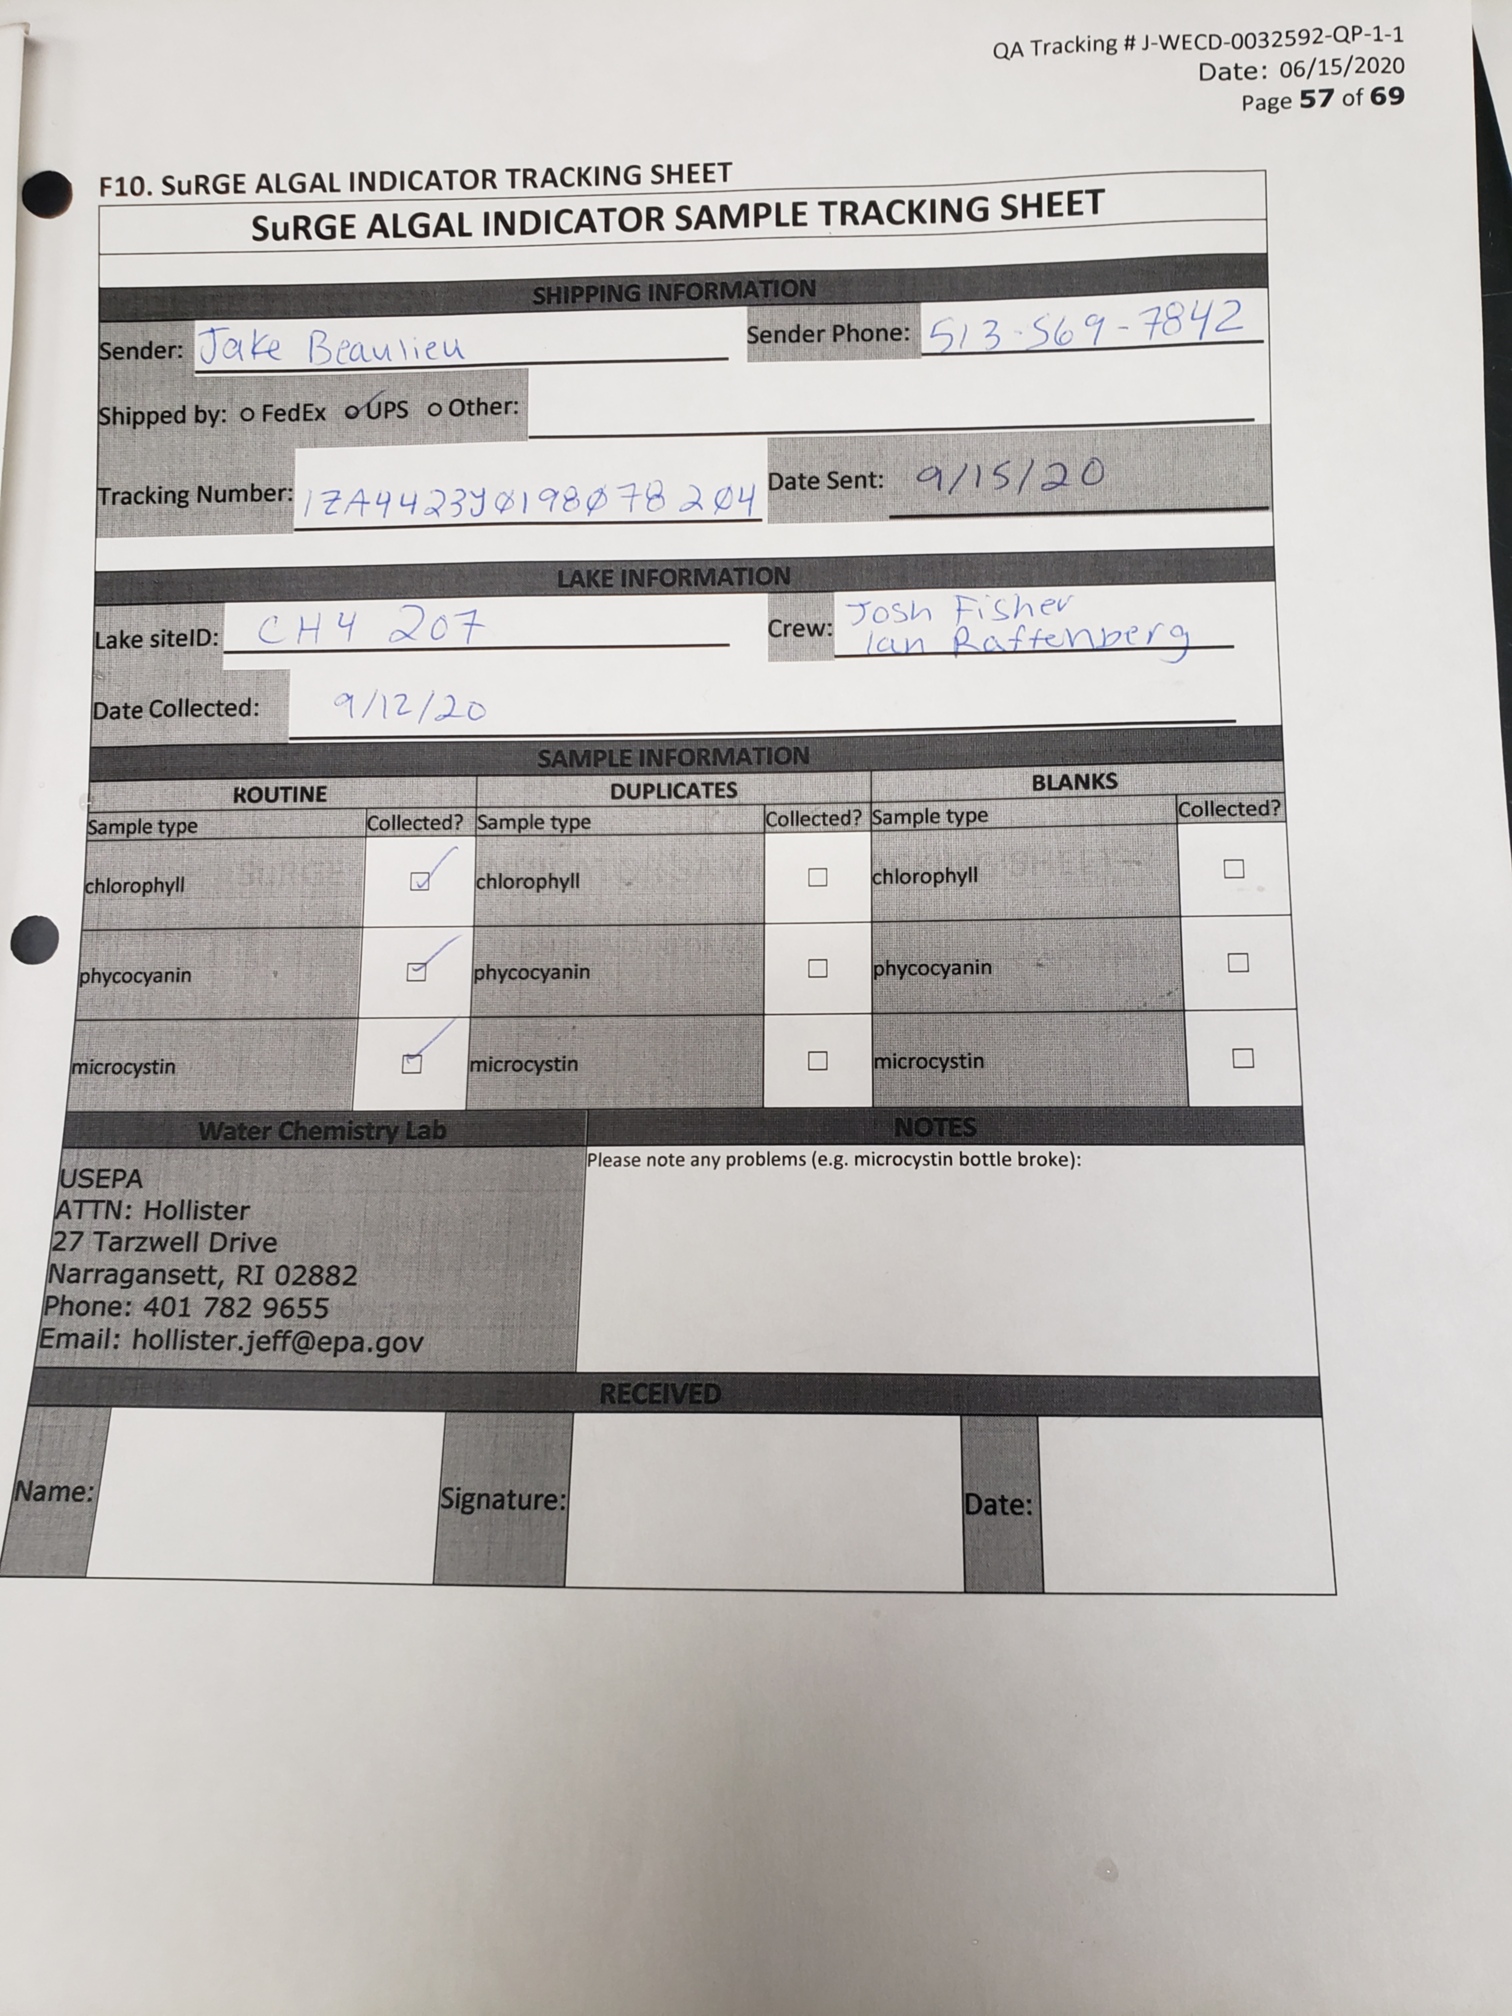 QA Tracking # J-WECD-0032592-QP-1-1
Date: 06/15/2020
Page 57 of 69
F10. SuRGE ALGAL INDICATOR TRACKING SHEET
SuRGE ALGAL INDICATOR SAMPLE TRACKING SHEET
SHIPPING INFORMATION
Sender: Jake Beaulieu Sender Phone: 513-569-7842
Shipped by: o FedEx o UPS o Other:
Tracking Number: Date Sent: 9/15/20
LAKE INFORMATION
Lake siteID: CH4 207 Crew: Josh Fisher
Ian Raftenberg
Date Collected: 9/12/20
SAMPLE INFORMATION
ROUTINE DUPLICATES BLANKS
Sample type Collected? Sample type Collected? Sample type Collected?
chlorophyll ☑ chlorophyll ☐ chlorophyll ☐
phycocyanin ☑ phycocyanin ☐ phycocyanin ☐
microcystin ☑ microcystin ☐ microcystin ☐
Water Chemistry Lab NOTES
USEPA
ATTN: Hollister
27 Tarzwell Drive
Narragansett, RI 02882
Phone: 401 782 9655
Email: hollister.jeff@epa.gov
Please note any problems (e.g. microcystin bottle broke):
RECEIVED
Name: Signature: Date: